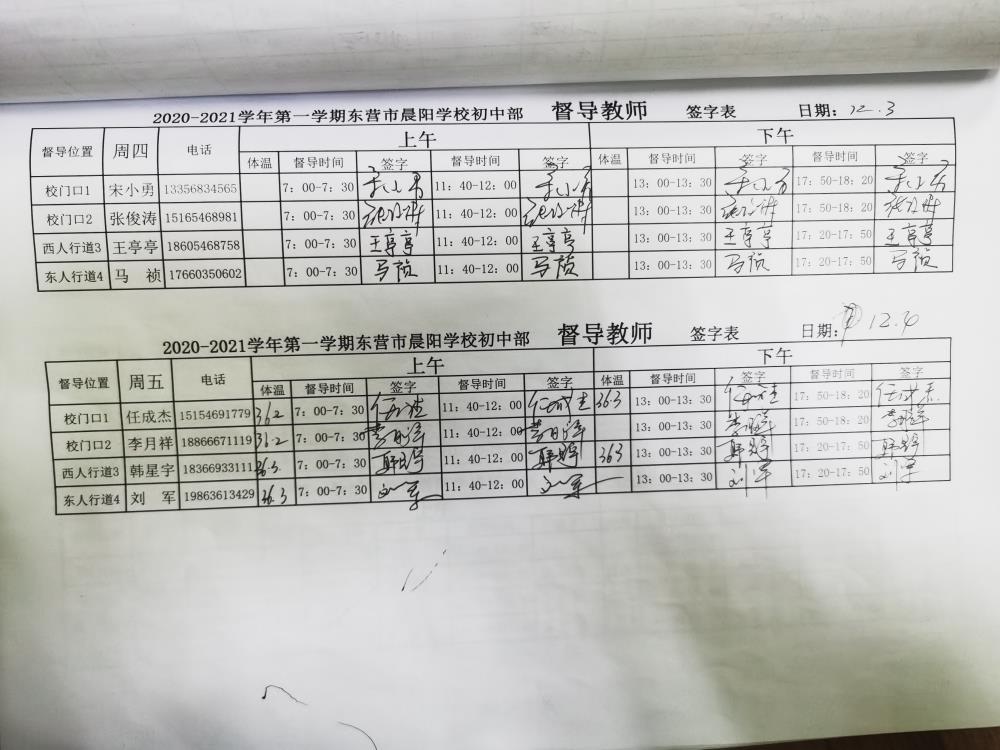 2020-2021学年第一学期东营市晨阳学校初中部 督导教师 签字表 日期: 12.3
督导位置 周四 电话 上午 下午
体温 督导时间 签字 督导时间 签字 体温 督导时间 签字 督导时间 签字
校门口1 宋小勇 13356834565 7：00-7：30 宋小勇 11：40-12：00 宋小勇 13：00-13：30 宋小勇 17：50-18：20 宋小勇
校门口2 张俊涛 15165468981 7：00-7：30 张俊涛 11：40-12：00 张俊涛 13：00-13：30 张俊涛 17：50-18：20 张俊涛
西人行道3 王亭亭 18605468758 7：00-7：30 王亭亭 11：40-12：00 王亭亭 13：00-13：30 王亭亭 17：20-17：50 王亭亭
东人行道4 马 祯 17660350602 7：00-7：30 马祯 11：40-12：00 马祯 13：00-13：30 马祯 17：20-17：50 马祯
2020-2021学年第一学期东营市晨阳学校初中部 督导教师 签字表 日期: 12.4
督导位置 周五 电话 上午 下午
体温 督导时间 签字 督导时间 签字 体温 督导时间 签字 督导时间 签字
校门口1 任成杰 15154691779 36.2 7：00-7：30 任成杰 11：40-12：00 任成杰 363 13：00-13：30 任成杰 17：50-18：20 任成杰
校门口2 李月祥 18866671119 36.2 7：00-7：30 李月祥 11：40-12：00 李月祥 13：00-13：30 李月祥 17：50-18：20 李月祥
西人行道3 韩星宇 18366933111 36.3 7：00-7：30 韩星宇 11：40-12：00 韩星宇 363 13：00-13：30 韩星宇 17：20-17：50 韩星宇
东人行道4 刘 军 19863613429 36.3 7：00-7：30 刘军 11：40-12：00 刘军 13：00-13：30 刘军 17：20-17：50 刘军